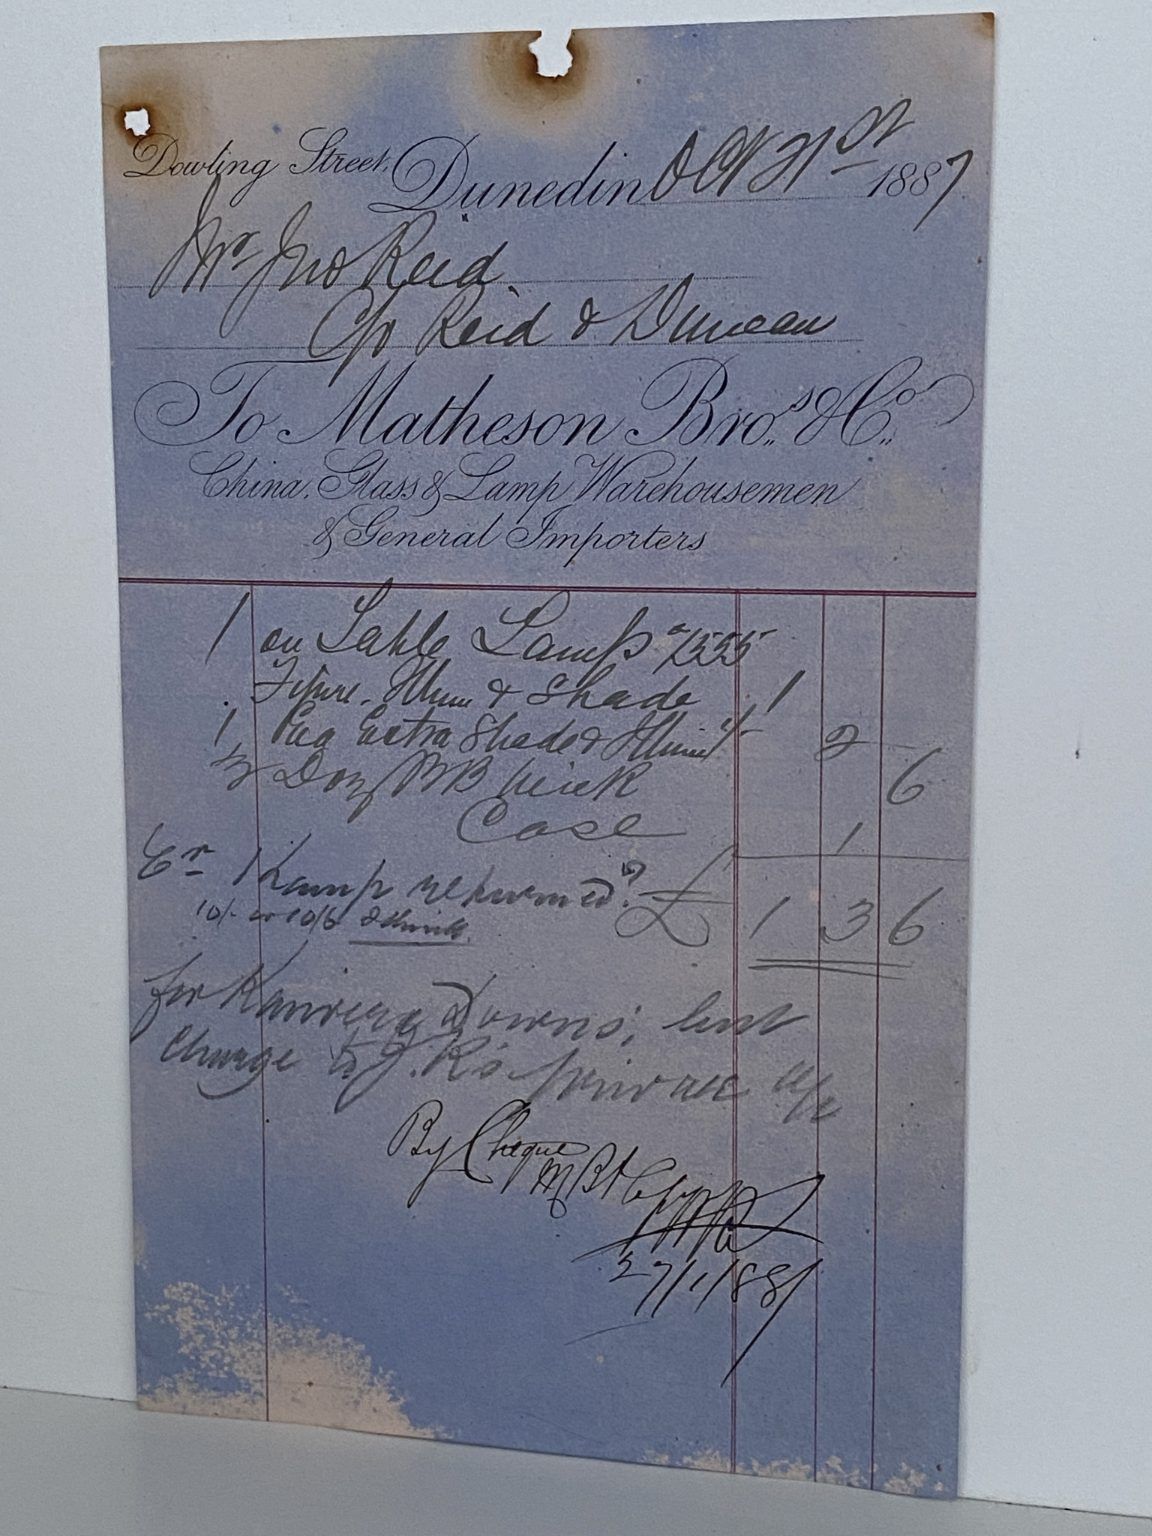 Dowling Street, Dunedin Oct 21st 1887
Mr Jno Reid
C/o Reid & Duncan
To Matheson Bros. & Co.
China, Glass & Lamp Warehousemen
& General Importers
1 Table Lamp 7555
& Shade 1
1 Extra Shade & 2
½ Doz BB Wick 6
Case 1
Cr 1 Lamp returned £ 1 3 6
10/- or 10/6 I think
for Downs, but
Charge to J. R's private a/c
By Cheque
M B & Co
27/1/88